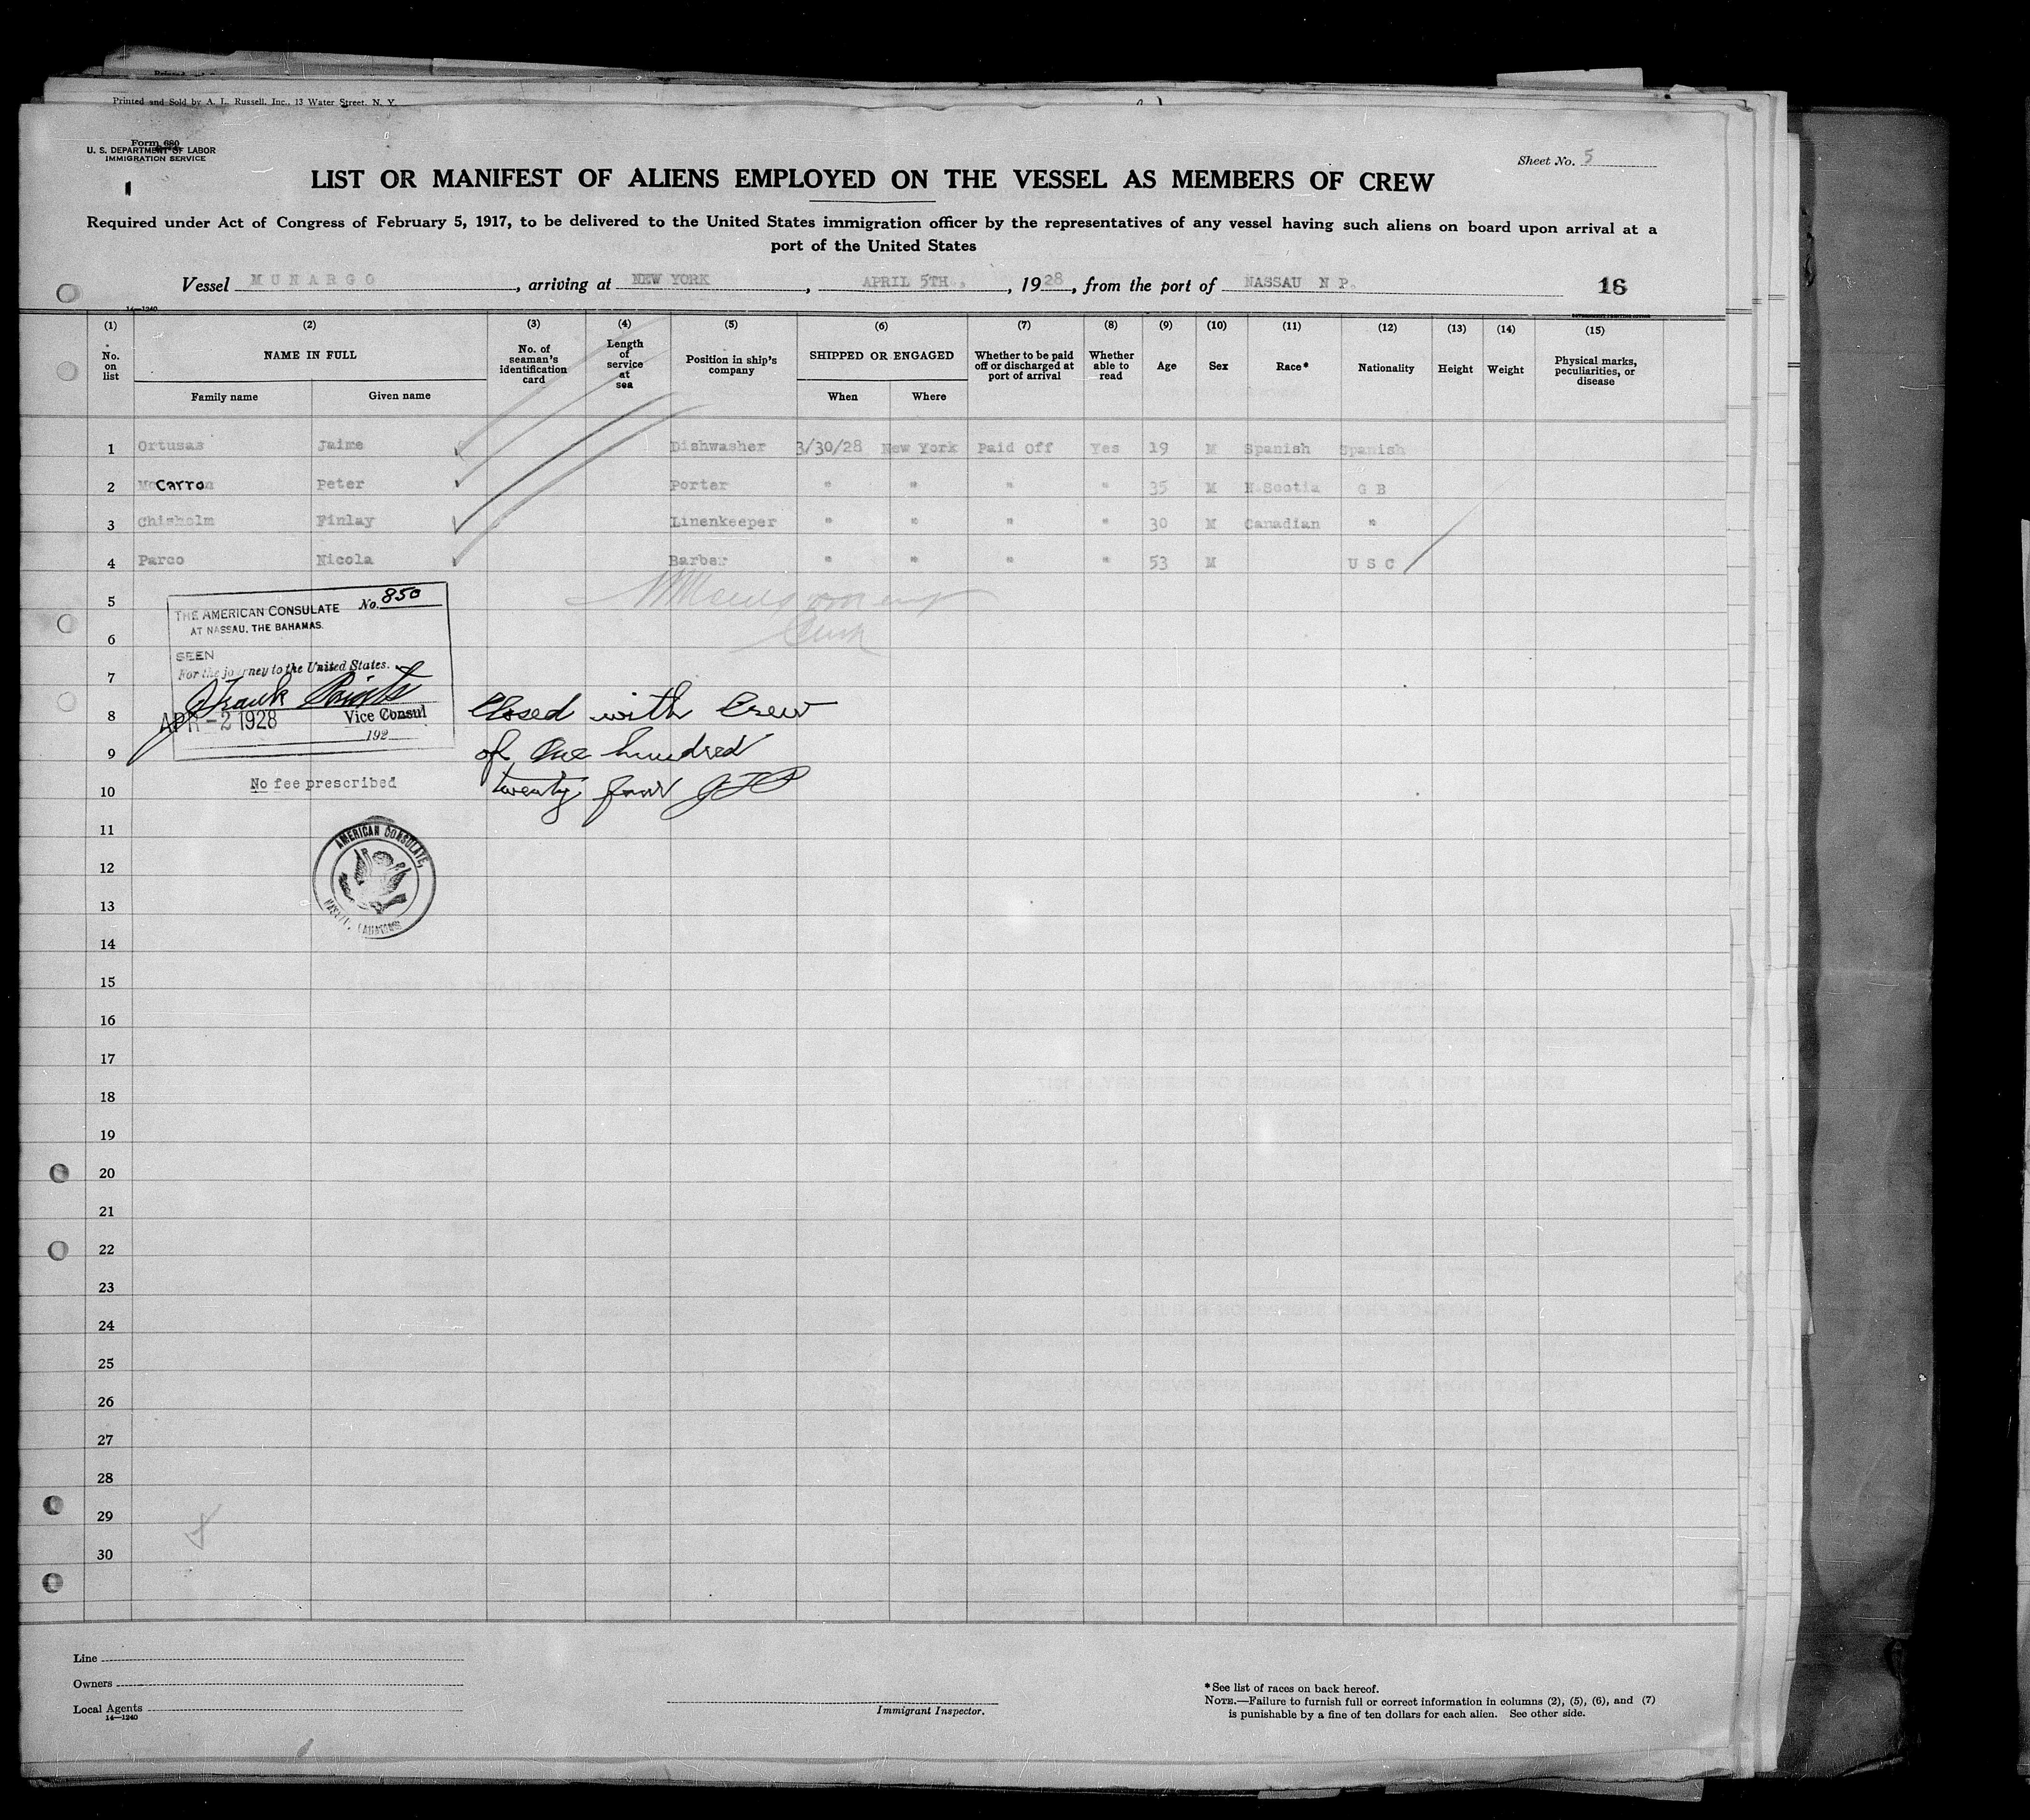 Printed and Sold by A. L. Russell, Inc., 13 Water Street, N. Y.
Form 680
U. S. DEPARTMENT OF LABOR
IMMIGRATION SERVICE
Sheet No. 5
LIST OR MANIFEST OF ALIENS EMPLOYED ON THE VESSEL AS MEMBERS OF CREW
Required under Act of Congress of February 5, 1917, to be delivered to the United States immigration officer by the representatives of any vessel having such aliens on board upon arrival at a
port of the United States
Vessel MUNARGO, arriving at NEW YORK, APRIL 5TH., 1928, from the port of NASSAU N P. 16
14—1240
(1) (2) (3) (4) (5) (6) (7) (8) (9) (10) (11) (12) (13) (14) (15)
No. on list NAME IN FULL Family name Given name No. of seaman's identification card Length of service at sea Position in ship's company SHIPPED OR ENGAGED When Where Whether to be paid off or discharged at port of arrival Whether able to read Age Sex Race* Nationality Height Weight Physical marks, peculiarities, or disease
1 Ortusas Jaime Dishwasher 3/30/28 New York Paid Off Yes 19 M Spanish Spanish
2 McCarron Peter Porter " " " " 35 M N.Scotia G B
3 Chisholm Finlay Linenkeeper " " " " 30 M Canadian "
4 Parco Nicola Barber " " " " 53 M U S C
5
6
7
8
9
10
11
12
13
14
15
16
17
18
19
20
21
22
23
24
25
26
27
28
29
30
THE AMERICAN CONSULATE No. 850
AT NASSAU, THE BAHAMAS.
SEEN
For the journey to the United States.
APR -2 1928 Vice Consul
192
No fee prescribed
AMERICAN CONSULATE,
NASSAU, BAHAMAS
Closed with Crew
of One hundred
twenty four
Line
Owners
Local Agents
14—1240
Immigrant Inspector.
*See list of races on back hereof.
NOTE.—Failure to furnish full or correct information in columns (2), (5), (6), and (7)
is punishable by a fine of ten dollars for each alien. See other side.